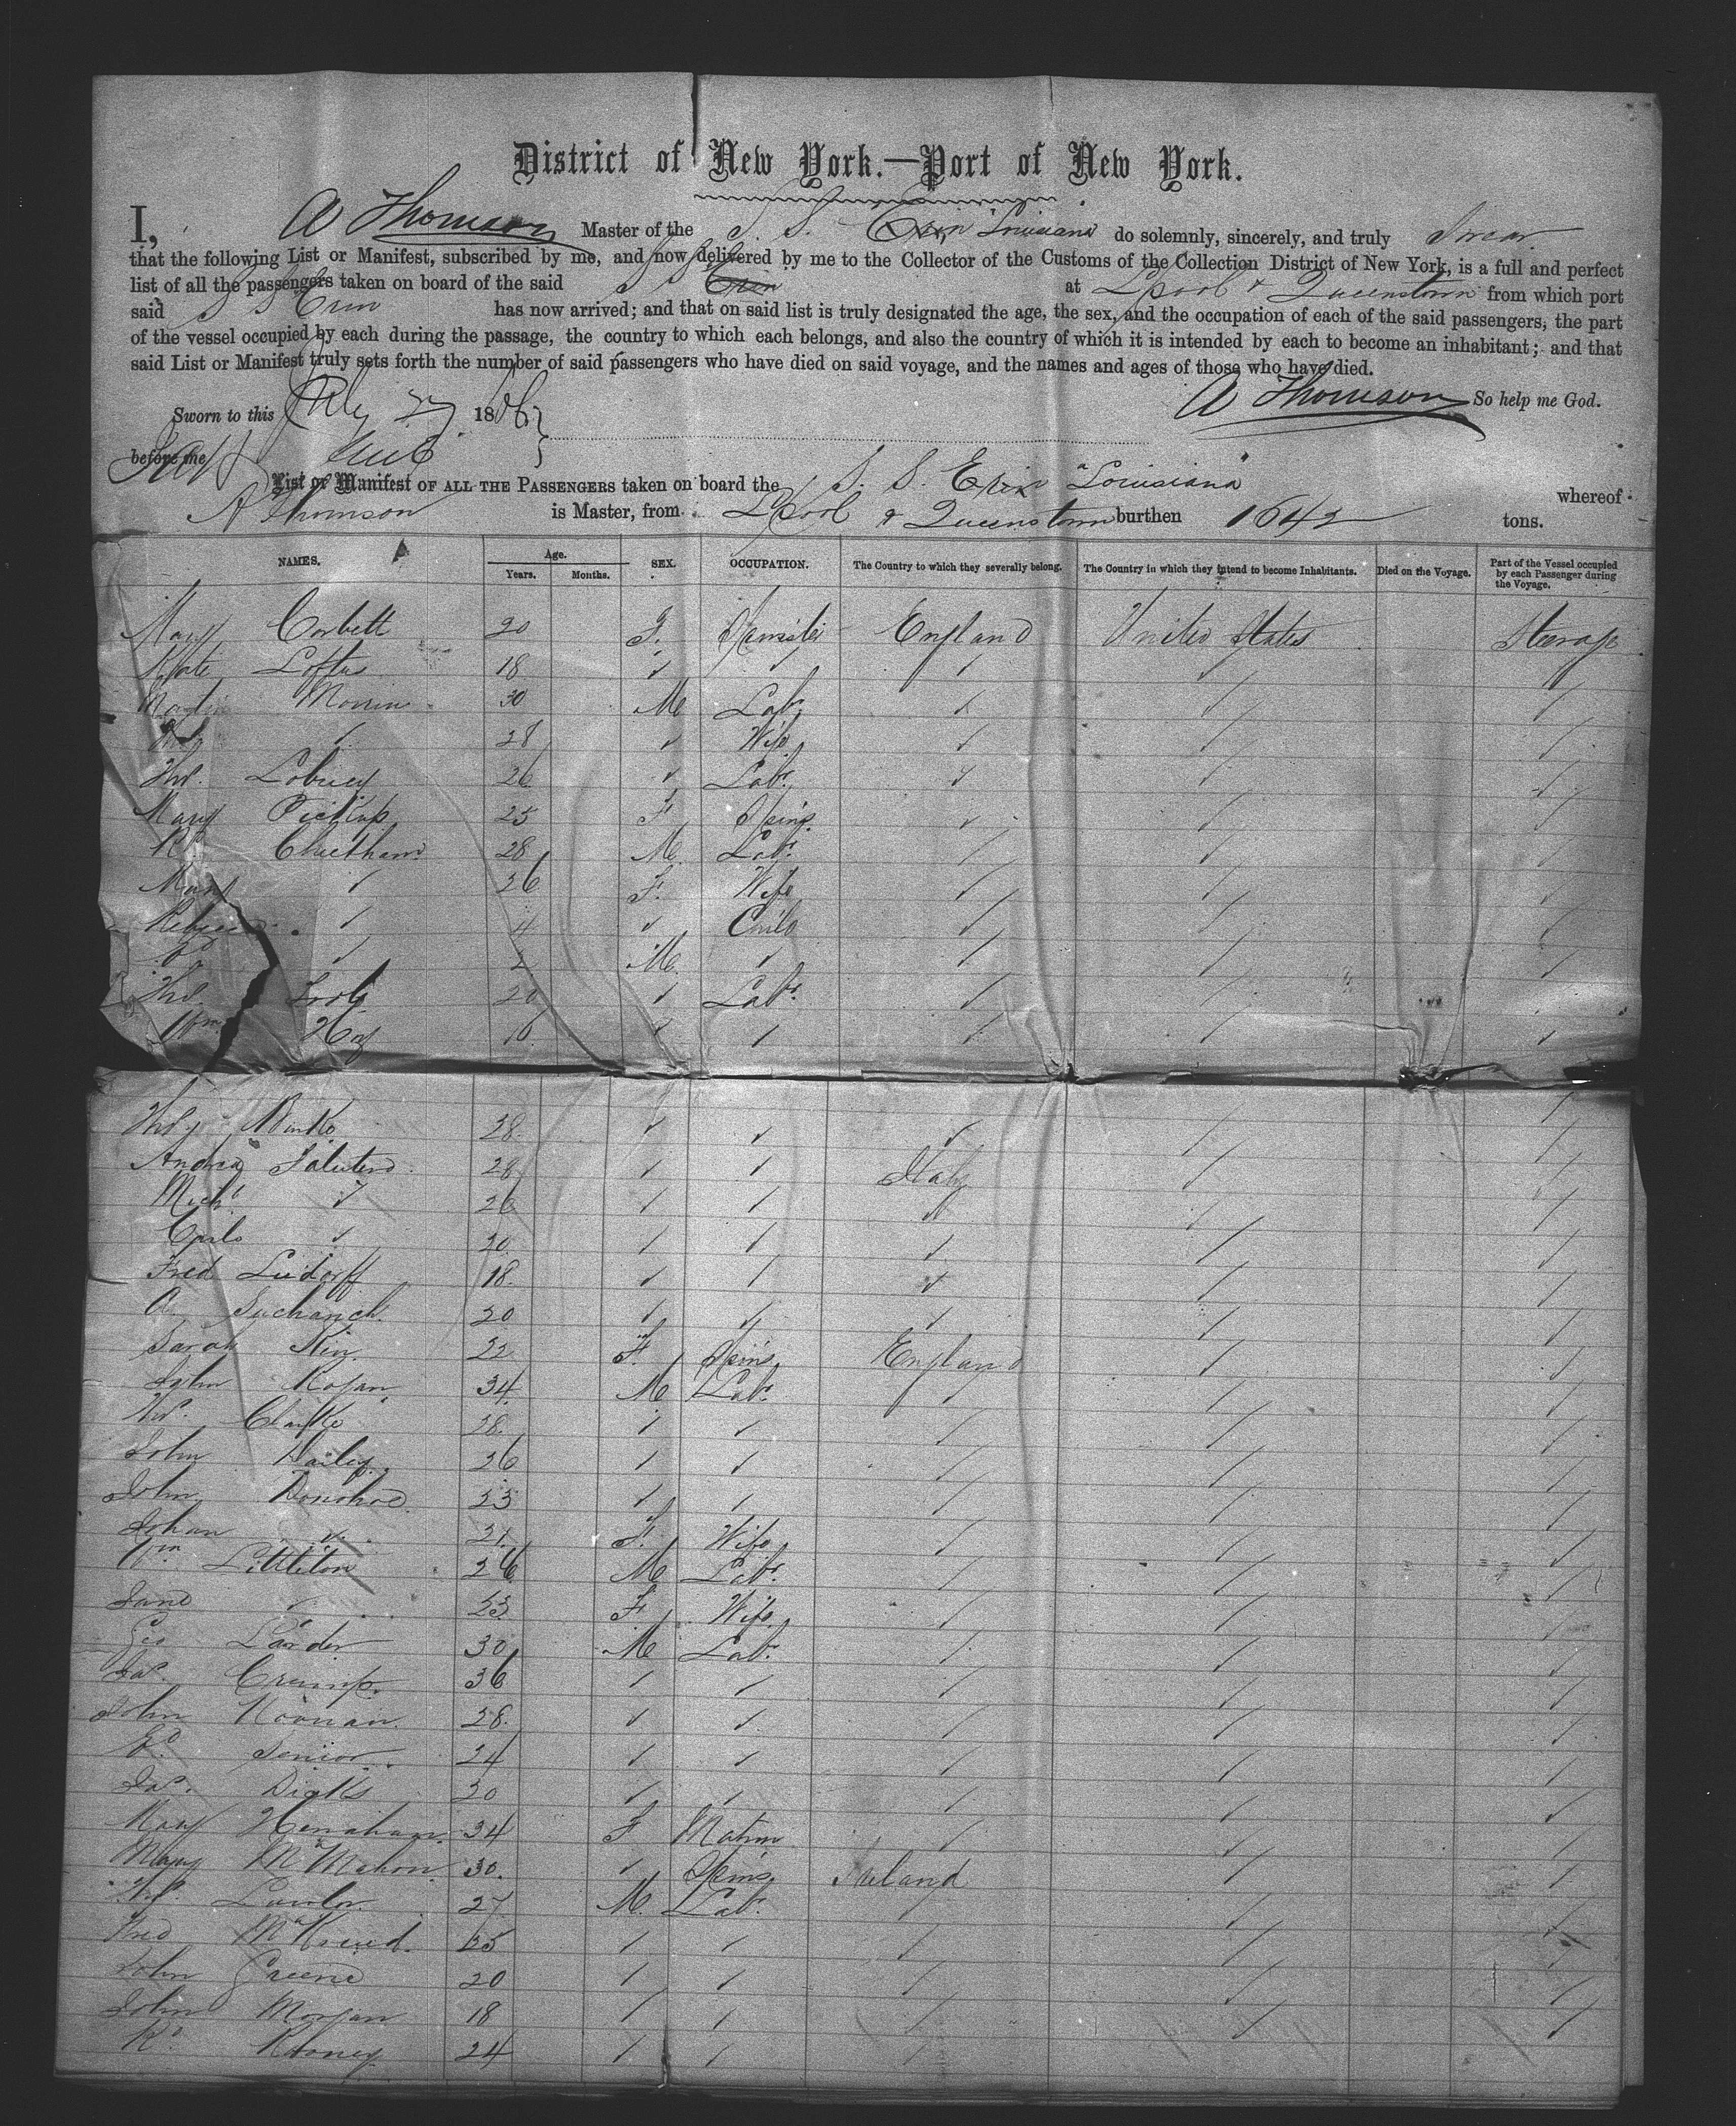 District of New York.—Port of New York.
I, A Thomson Master of the S. S. Erin "Louisiana" do solemnly, sincerely, and truly Swear.
that the following List or Manifest, subscribed by me, and now delivered by me to the Collector of the Customs of the Collection District of New York, is a full and perfect
list of all the passengers taken on board of the said S S Erin at L'pool & Queenstown from which port
said S S Erin has now arrived; and that on said list is truly designated the age, the sex, and the occupation of each of the said passengers, the part
of the vessel occupied by each during the passage, the country to which each belongs, and also the country of which it is intended by each to become an inhabitant; and that
said List or Manifest truly sets forth the number of said passengers who have died on said voyage, and the names and ages of those who have died.
A Thomson So help me God.
Sworn to this 27 186
before me
List or Manifest OF ALL THE PASSENGERS taken on board the S. S. Erin "Louisiana" whereof
A Thomson is Master, from L'pool & Queenstown burthen 1642 tons.
NAMES. Age. Years. Months. SEX. OCCUPATION. The Country to which they severally belong. The Country in which they intend to become Inhabitants. Died on the Voyage. Part of the Vessel occupied by each Passenger during the Voyage.
Mary Corbett 20 F. Spinster England United States Steerage
Kate Loftus 18 ✓ ✓ ✓ ✓ ✓
Martin Morrin 30 M Labr ✓ ✓ ✓
✓ 28 ✓ Wife ✓ ✓ ✓
Thos. 26 ✓ Labr. ✓ ✓ ✓
Mary Pickup 25 F Spins. ✓ ✓ ✓
Rd Cheetham 28 M Labr. ✓ ✓ ✓
Mary ✓ 26 F. Wife ✓ ✓ ✓
Rebecca ✓ 4 ✓ Child ✓ ✓ ✓
✓ 2 M. ✓ ✓ ✓ ✓
Thos. 20 ✓ Labr. ✓ ✓ ✓
Wm Hoy ✓ ✓ ✓ ✓ ✓
Thos. Burke 28. ✓ ✓ ✓ ✓ ✓
Andrea 28 ✓ ✓ Italy ✓ ✓
Michl ✓ 26 ✓ ✓ ✓ ✓ ✓
Carlo ✓ 20. ✓ ✓ ✓ ✓ ✓
Fred Ludorff 18. ✓ ✓ ✓ ✓ ✓
A. Suchanck. 20 ✓ ✓ ✓ ✓ ✓
Sarah 22 F. Spins. England ✓ ✓
John Rogan 34. M Labr. ✓ ✓ ✓
Thos. Clarke 28. ✓ ✓ ✓ ✓ ✓
John Dailey. 26 ✓ ✓ ✓ ✓ ✓
John Donohoe. 23 ✓ ✓ ✓ ✓ ✓
Johan ✓ 21. F. Wife ✓ ✓ ✓
Wm Littleton 26 M Labr. ✓ ✓ ✓
Jane ✓ 23 F Wife ✓ ✓ ✓
Geo Larder 30 M Labr. ✓ ✓ ✓
Jas. Crump. 36 ✓ ✓ ✓ ✓ ✓
John Noonan. 28. ✓ ✓ ✓ ✓ ✓
Senior 24 ✓ ✓ ✓ ✓ ✓
Jas. Dicks 20 ✓ ✓ ✓ ✓ ✓
Mary Henahan. 34 F Matrn ✓ ✓ ✓
Mary McMahon 30. ✓ Spins. Ireland ✓ ✓
Lawlor. 27 M. Labr. ✓ ✓ ✓
25 ✓ ✓ ✓ ✓ ✓
John Greene 20 ✓ ✓ ✓ ✓ ✓
John Morgan 18 ✓ ✓ ✓ ✓ ✓
Rd. Rooney 24 ✓ ✓ ✓ ✓ ✓